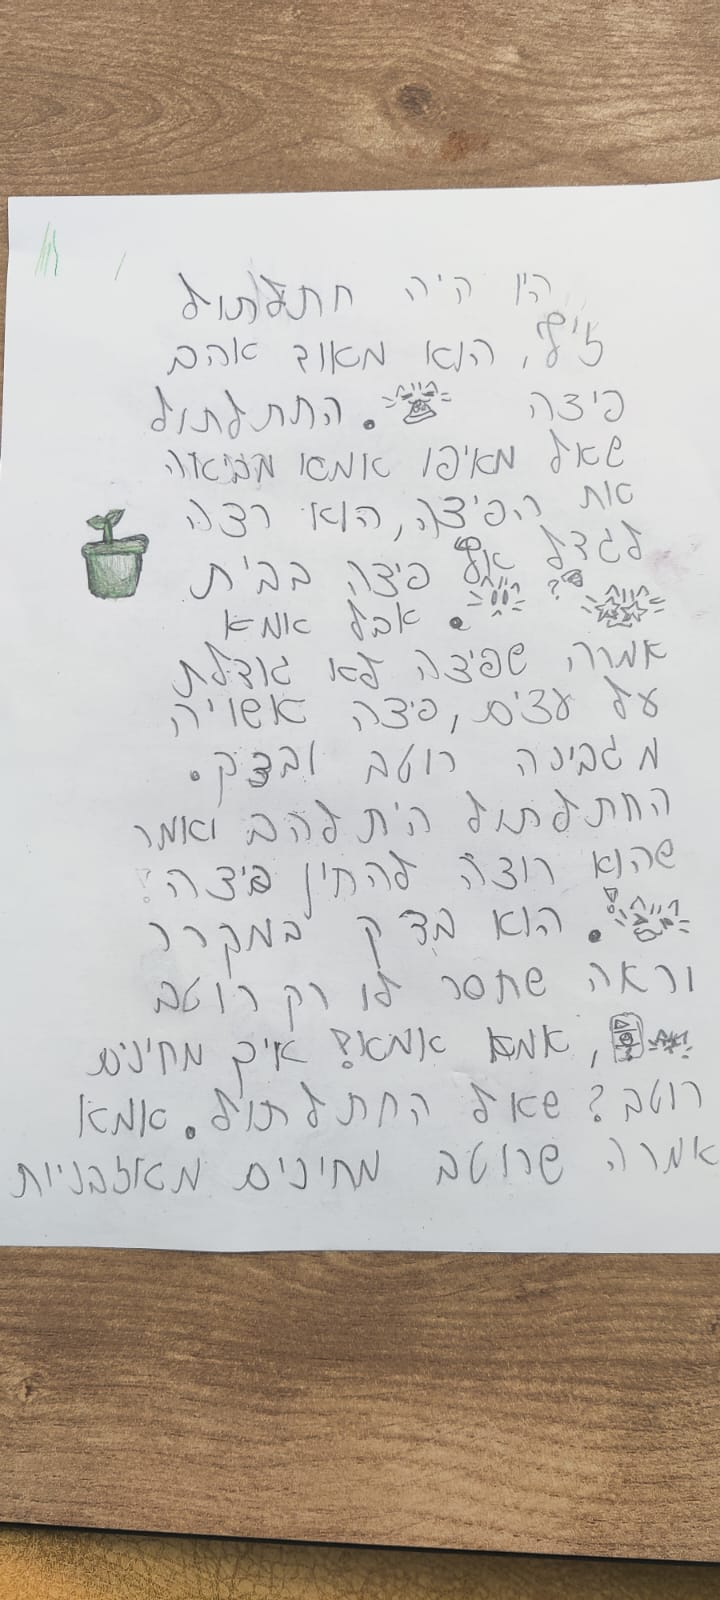 היו היה חתלתול
ג'ינג'י, הוא מאוד אהב
פיצה. החתלתול
שאל מאיפו אמא מביאה
את הפיצה, הוא רצה
לגדל פיצה בבית
? . אבל אמא
אמרה שפיצה לא גודלת
על עצים, פיצה אשויה
מגבינה רוטב ובצק.
החתלתול התלהב ואמר
שהוא רוצה להחין פיצה!
! . הוא בדק במקרר
וראה שחסר לו רק רוטב
, אמא אמא! איך מחינים
רוטב? שאל החתלתול. אמא
אמרה שרוטב מחינים מאגבניות